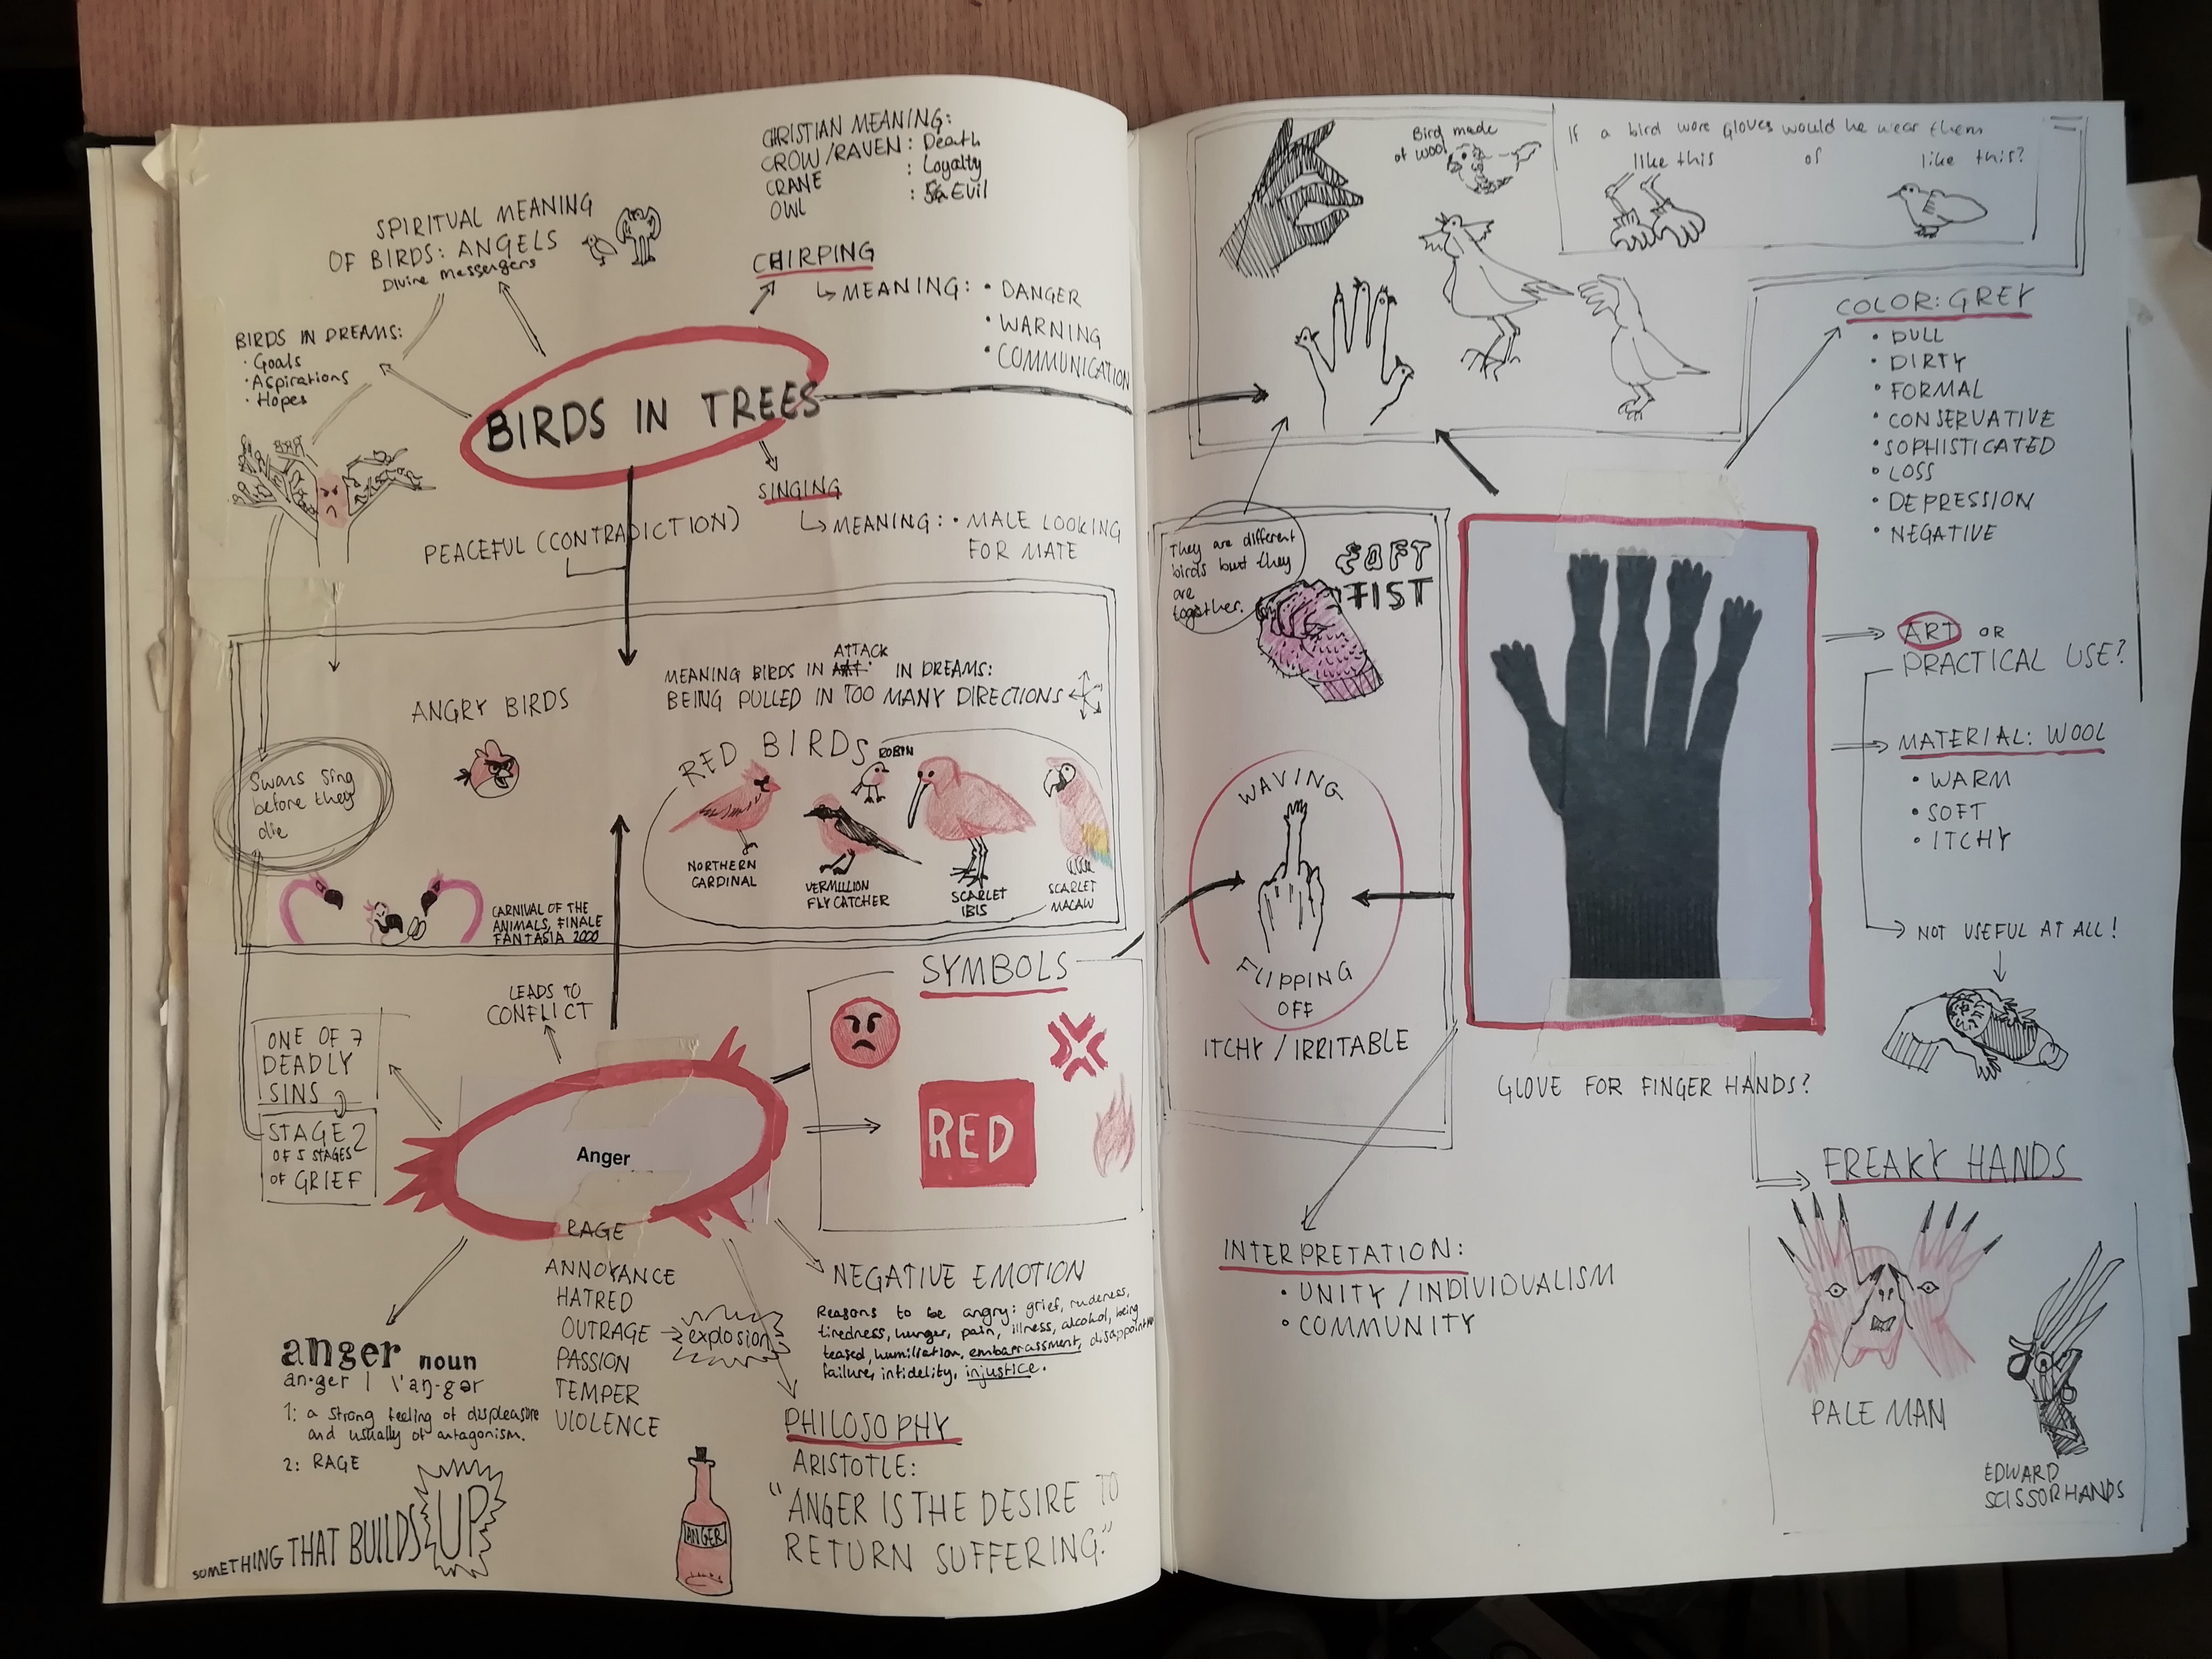 CHRISTIAN MEANING:
CROW/RAVEN : Death
CRANE : Loyalty
OWL : Evil
SPIRITUAL MEANING
OF BIRDS: ANGELS
Divine messengers
CHIRPING
MEANING: • DANGER
• WARNING
• COMMUNICATION
BIRDS IN DREAMS:
• Goals
• Aspirations
• Hopes
BIRDS IN TREES
SINGING
MEANING: • MALE LOOKING
FOR MATE
PEACEFUL (CONTRADICTION)
ATTACK
MEANING BIRDS IN IN DREAMS:
BEING PULLED IN TOO MANY DIRECTIONS
ANGRY BIRDS
RED BIRDS
ROBIN
NORTHERN
CARDINAL
VERMILLION
FLYCATCHER
SCARLET
IBIS
SCARLET
MACAW
Swans Sing
before they
die
CARNIVAL OF THE
ANIMALS, FINALE
FANTASIA 2000
LEADS TO
CONFLICT
SYMBOLS
RED
ONE OF 7
DEADLY
SINS
STAGE 2
OF 5 STAGES
OF GRIEF
Anger
RAGE
ANNOYANCE
HATRED
OUTRAGE
explosion
PASSION
TEMPER
VIOLENCE
NEGATIVE EMOTION
Reasons to be angry: grief, rudeness,
tiredness, hunger, pain, illness, alcohol, being
teased, humiliation, embarrassment,
failure, infidelity, injustice.
anger noun
an·ger | \'aŋ-gər
1: a strong feeling of displeasure
and usually of antagonism.
2: RAGE
SOMETHING THAT BUILDS UP
ANGER
PHILOSOPHY
ARISTOTLE:
"ANGER IS THE DESIRE TO
RETURN SUFFERING."
Bird made
of wool
If a bird wore gloves would he wear them
like this or like this?
COLOR: GREY
• DULL
• DIRTY
• FORMAL
• CONSERVATIVE
• SOPHISTICATED
• LOSS
• DEPRESSION
• NEGATIVE
They are different
birds but they
are
together.
SOFT
FIST
ART OR
PRACTICAL USE?
MATERIAL: WOOL
• WARM
• SOFT
• ITCHY
WAVING
FLIPPING
OFF
ITCHY / IRRITABLE
NOT USEFUL AT ALL!
GLOVE FOR FINGER HANDS?
FREAKY HANDS
INTERPRETATION:
• UNITY / INDIVIDUALISM
• COMMUNITY
PALE MAN
EDWARD
SCISSORHANDS